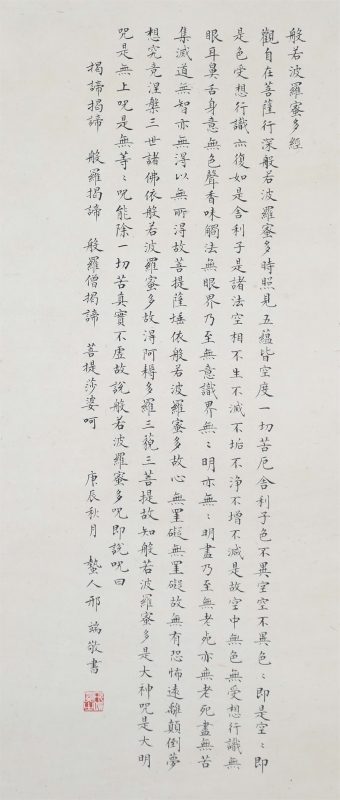 般若波羅蜜多經
觀自在菩薩行深般若波羅蜜多時照見五蘊皆空度一切苦厄舍利子色不異空空不異色〻即是空〻即
是色受想行識亦復如是舍利子是諸法空相不生不滅不垢不淨不增不減是故空中無色無受想行識無
眼耳鼻舌身意無色聲香味觸法無眼界乃至無意識界無〻明亦無〻明盡乃至無老死亦無老死盡無苦
集滅道無智亦無得以無所得故菩提薩埵依般若波羅蜜多故心無罣礙無罣礙故無有恐怖遠離顛倒夢
想究竟涅槃三世諸佛依般若波羅蜜多故得阿耨多羅三藐三菩提故知般若波羅蜜多是大神呪是大明
呪是無上呪是無等〻呪能除一切苦真實不虛故說般若波羅蜜多呪即說呪曰
揭諦揭諦 般羅揭諦 般羅僧揭諦 菩提莎婆呵 庚辰秋月 蟄人邢端敬書